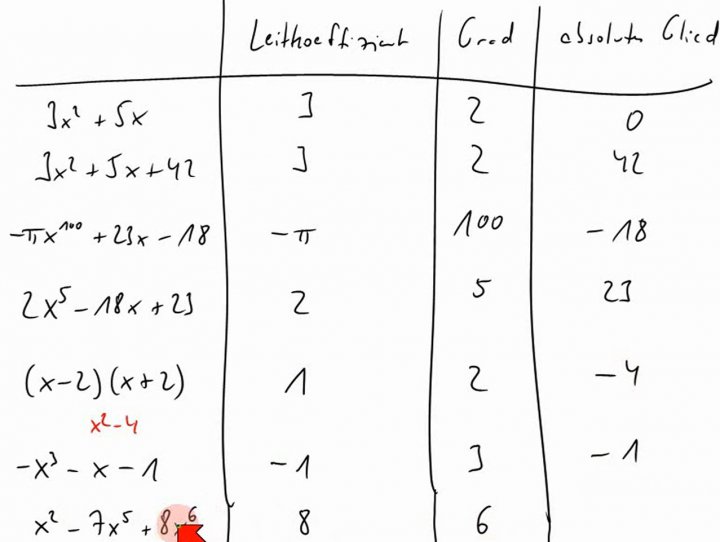 Leitkoeffizient Grad absolutes Glied
3x² + 5x 3 2 0
3x² + 5x + 42 3 2 42
-πx¹⁰⁰ + 23x - 18 -π 100 -18
2x⁵ - 18x + 23 2 5 23
(x-2)(x+2) 1 2 -4
x²-4
-x³ - x - 1 -1 3 -1
x² - 7x⁵ + 8x⁶ 8 6